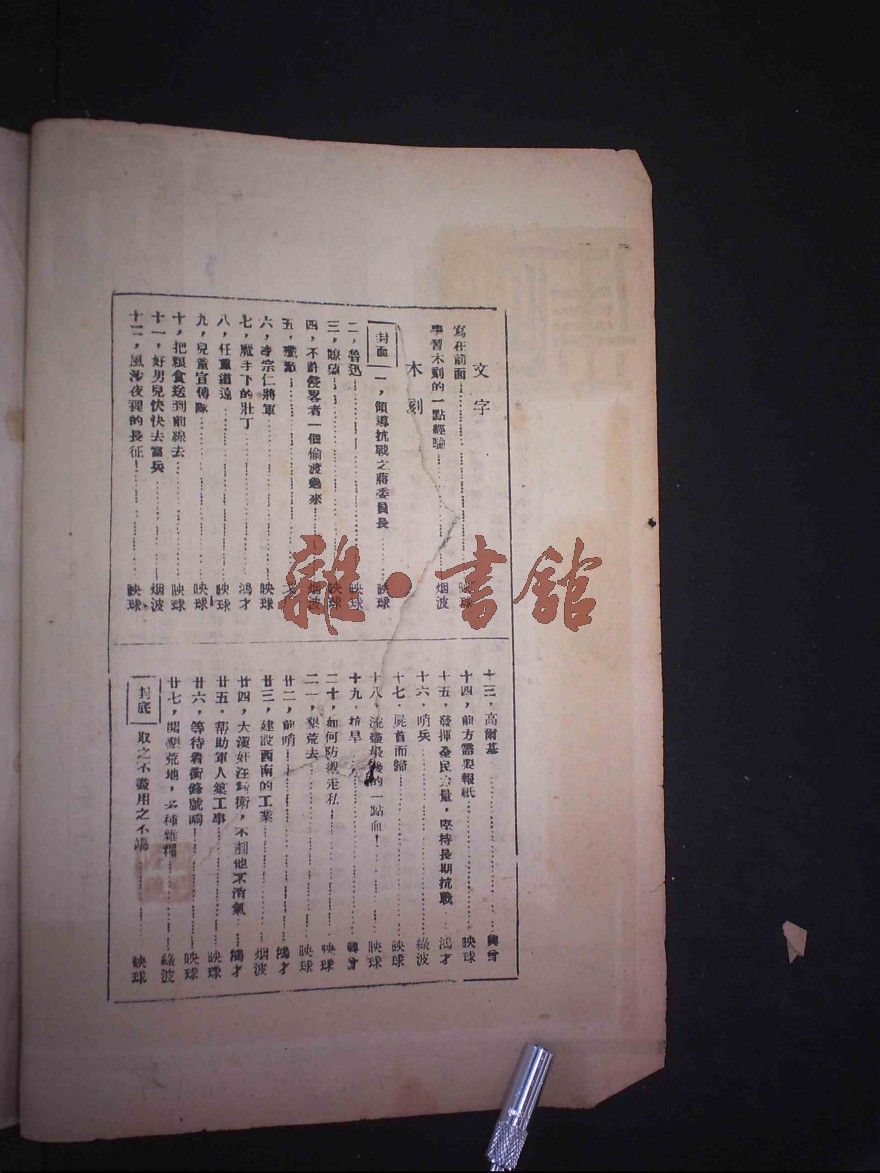 文字
寫在前面……映球
學習木刻的一點經驗……烟波
木刻
封面 一，領導抗戰之蔣委員長……映球
二，魯迅……映球
三，瞭望……映球
四，不許侵畧者一個偷渡過來……烟波
五，殲敵……
六，李宗仁將軍……映球
七，魔手下的壯丁……鴻才
八，任重道遠……映球
九，兒童宣傳隊……映球
十，把粮食送到前線去……映球
十一，好男兒快快去當兵……烟波
十二，風沙夜裡的長征！……映球
十三，高爾基……
十四，前方需要報紙……映球
十五，發揮全民力量，堅持長期抗戰……鴻才
十六，哨兵……綠波
十七，屍首而歸……映球
十八，流盡最後的一點血！……映球
十九，抗旱……
二十，如何防禦走私……映球
二一，墾荒去……映球
廿二，前哨……鴻才
廿三，建設西南的工業……烟波
廿四，大漢奸汪精衛，不剷他不消氣……鴻才
廿五，帮助軍人築工事……映球
廿六，等待着衝鋒號响！……映球
廿七，開墾荒地，多種雜糧……綠波
封底 取之不盡用之不竭……映球
雜·書館